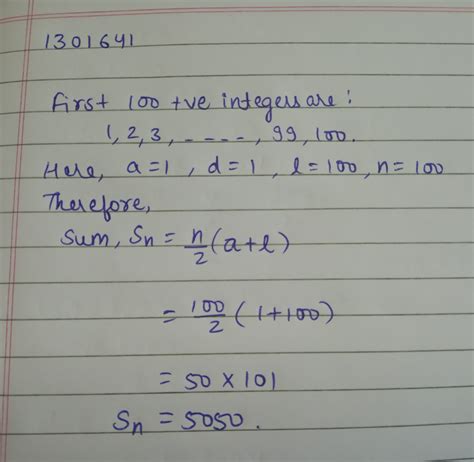 1301641
First 100 +ve integers are :
1, 2, 3, - - - -, 99, 100.
Here, a = 1 , d = 1 , l = 100 , n = 100
Therefore,
Sum, Sn = n/2 (a + l)
= 100/2 (1 + 100)
= 50 × 101
Sn = 5050 .